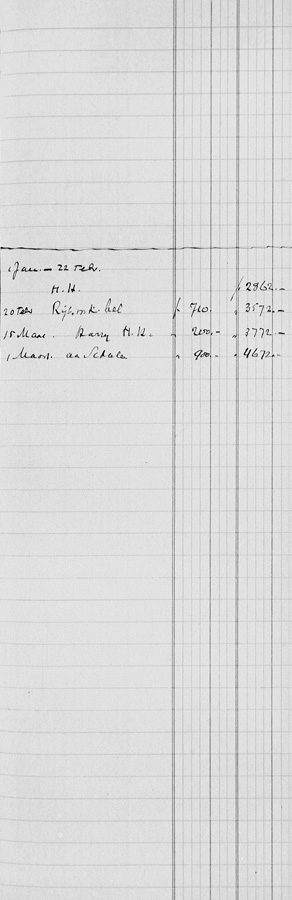 1 Jan. – 22 Febr.
H.H. ƒ 2862.–
20 Febr Rijksink. bel ƒ 710.– „ 3572.–
15 Maart. Harry H.H. „ 200.– „ 3772.–
1 Maart. aan Schula „ 900.– „ 4672.–